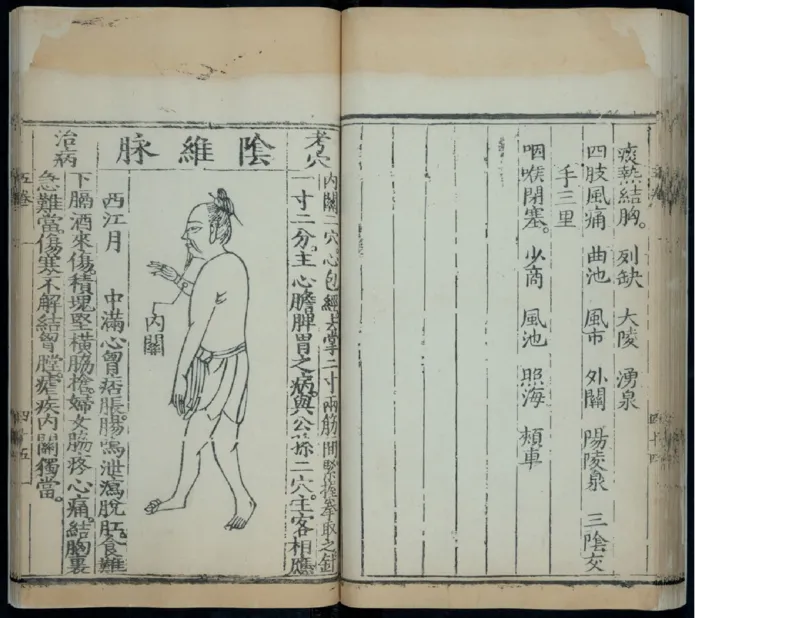 痰熱結胸。 列缺 大陵 湧泉
四肢風痛 曲池 風市 外關 陽陵泉 三陰交
手三里
咽喉閉塞。 少商 風池 照海 頰車
四十四
考穴
內關二穴心包經去掌二寸兩筋間緊握拳取之針
一寸二分。主心膽脾胃之病。與公孫二穴。主客相應
陰維脉
內關
治病
西江月 中滿心胷痞脹腸鳴泄瀉脫肛。食難
下膈酒來傷。積塊堅橫脇搶。婦女脇疼心痛。結胸裏
急難當。傷寒不解結胷膛。瘧疾內關獨當。
五卷 四十五